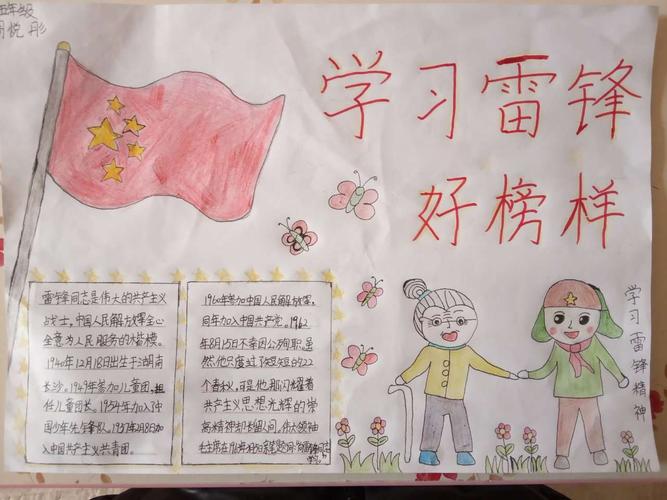 五年级
悦彤
学习雷锋
好榜样
学习雷锋精神
雷锋同志是伟大的共产主义
战士,中国人民解放军全心
全意为人民服务的大楷模。
1940年12月18日出生于湖南
长沙。1949年参加儿童团,担
任儿童团长。1954年加入中
国少年先锋队。1957年2月8日加
入中国共产主义共青团。
1960年参加中国人民解放军,
同年加入中国共产党。1962
年8月15日不幸因公殉职。虽
然他只度过了短短的22
个春秋,可是他那闪耀着
共产主义思想光辉的崇
高精神却长留人间,伟大领袖
毛主席在